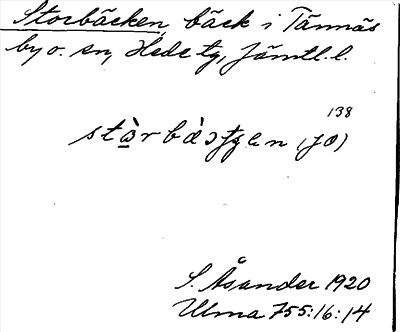 Storbäcken, bäck i Tännäs
by o. sn, Hede tg, Jämtl. l.
138
S. Åsander 1920
Ulma 755:16:14